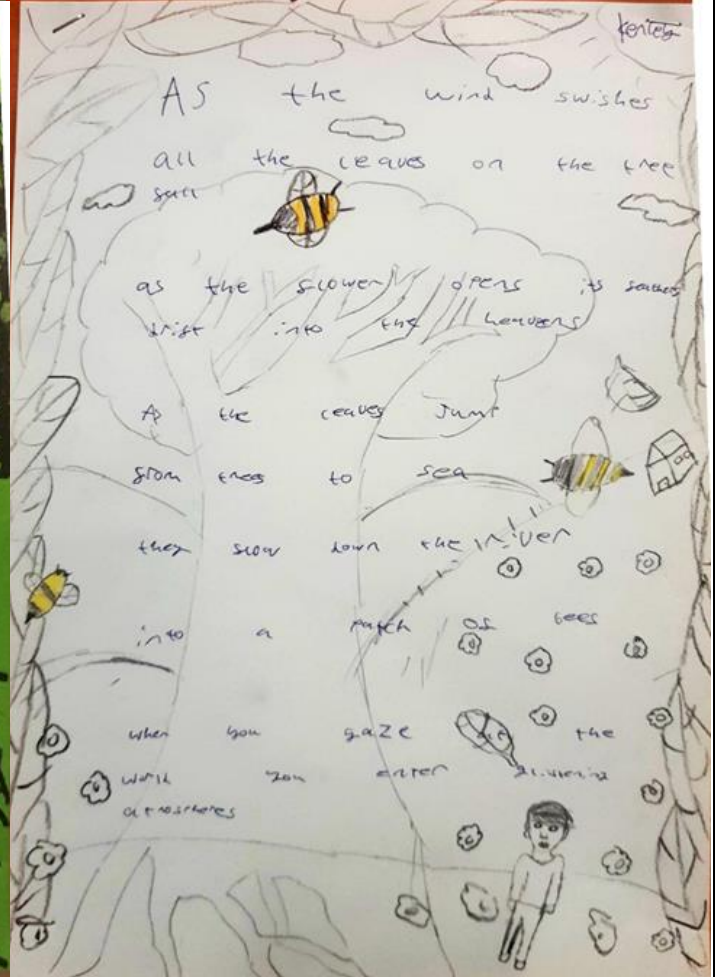 As the wind swishes
all the leaves on the tree
fall
as the flower opens its
drift into the heavens
As the leaves Jump
from trees to sea
they flow down the river
into a patch of bees
when you gaze at the
world you enter
atmospheres